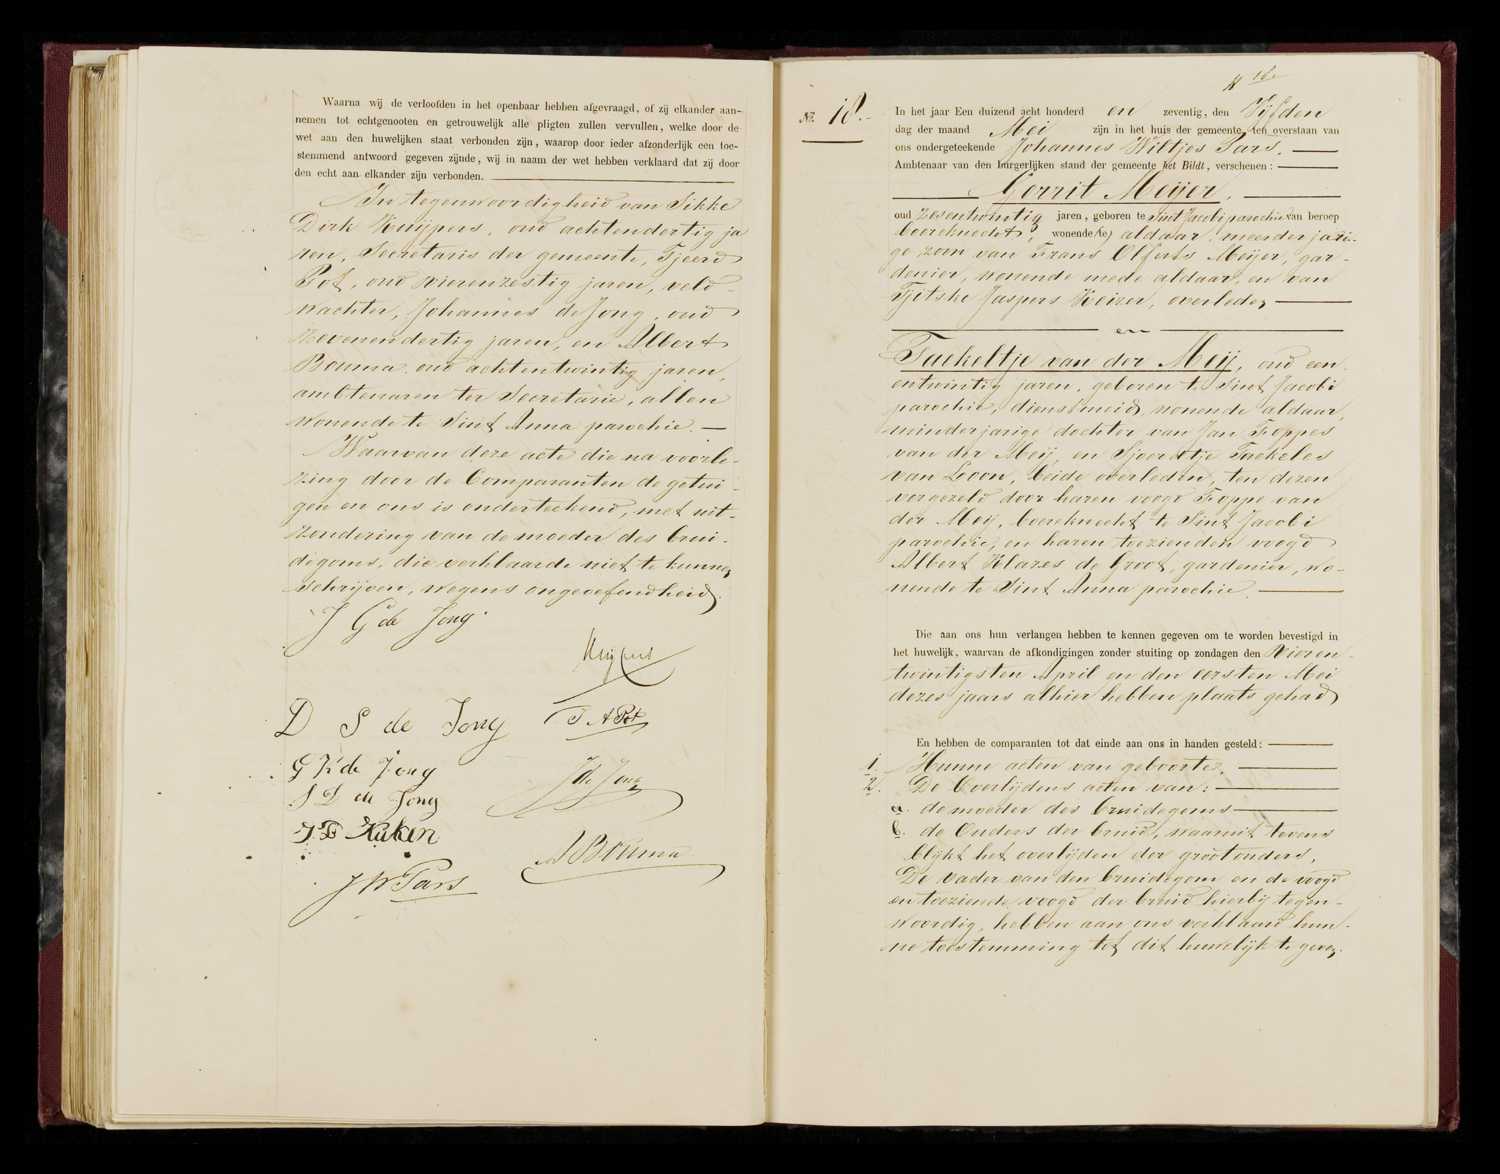 Waarna wij de verloofden in het openbaar hebben afgevraagd, of zij elkander aan-
nemen tot echtgenooten en getrouwelijk alle pligten zullen vervullen, welke door de
wet aan den huwelijken staat verbonden zijn, waarop door ieder afzonderlijk een toe-
stemmend antwoord gegeven zijnde, wij in naam der wet hebben verklaard dat zij door
den echt aan elkander zijn verbonden.
In tegenwoordigheid van Sikke
Dirk Kuijpers, oud achtendertig ja
ren, Secretaris der gemeente, Tjeerd
Pot, oud vierenzestig jaren, veld-
wachter, Johannes de Jong, oud
zevenendertig jaren, en Albert
Bouma, oud achtentwintig jaren,
ambtenaren ter Secretarie, allen
wonende te Sint Anna parochie. —
Waarvan deze acte die na voorle-
zing door de Comparanten de getui-
gen en ons is onderteekend, met uit-
zondering van de moeder des brui-
degoms, die verklaarde niet te kunnen
schrijven, wegens ongeoefendheid.
J G de Jong
Kuijpers
D S de Jong
T A Pot
G K de Jong
J de Jong
S D de Jong
J F Kuken
A Bouma
J W Sars
No. 18.-
In het jaar Een duizend acht honderd en zeventig, den Vijfden
dag der maand Mei zijn in het huis der gemeente, ten overstaan van
ons ondergeteekende Johannes Wiltjes Sars,
Ambtenaar van den burgerlijken stand der gemeente het Bildt, verschenen:
Gerrit Meijer,
oud zesentwintig jaren, geboren te Sint Jacobi parochie van beroep
boereknecht, wonende (te) aldaar, meerderjari-
ge zoon van Frans Olferts Meijer, gar-
denier, wonende mede aldaar, en van
Tjitske Jaspers Keizer, overleden
en
Taekeltje van der Meij, oud een
entwintig jaren, geboren te Sint Jacobi
parochie, dienstmeid, wonende aldaar,
minderjarige dochter van Jan Foppes
van der Meij en Sjoerdtje Taekeles
van Loon, beide overleden, ten dezen
vergezeld door haren voogd Foppe van
der Meij, boereknecht te Sint Jacobi
parochie, en haren toezienden voogd
Albert Klazes de Groot, gardenier, wo-
nende te Sint Anna parochie.
Die aan ons hun verlangen hebben te kennen gegeven om te worden bevestigd in
het huwelijk, waarvan de afkondigingen zonder stuiting op zondagen den Vieren-
twintigsten April en den eersten Mei
dezes jaars alhier hebben plaats gehad
En hebben de comparanten tot dat einde aan ons in handen gesteld:
1. Hunne acten van geboorte,
2. De Overlijdens acten van:
a. de moeder des bruidegoms
b. de Ouders der bruid, waaruit tevens
blijkt het overlijden der grootouders,
De vader van den bruidegom en de voogd
en toeziende voogd der bruid hierbij tegen-
woordig, hebben aan ons verklaard hun-
ne toestemming tot dit huwelijk te geven.